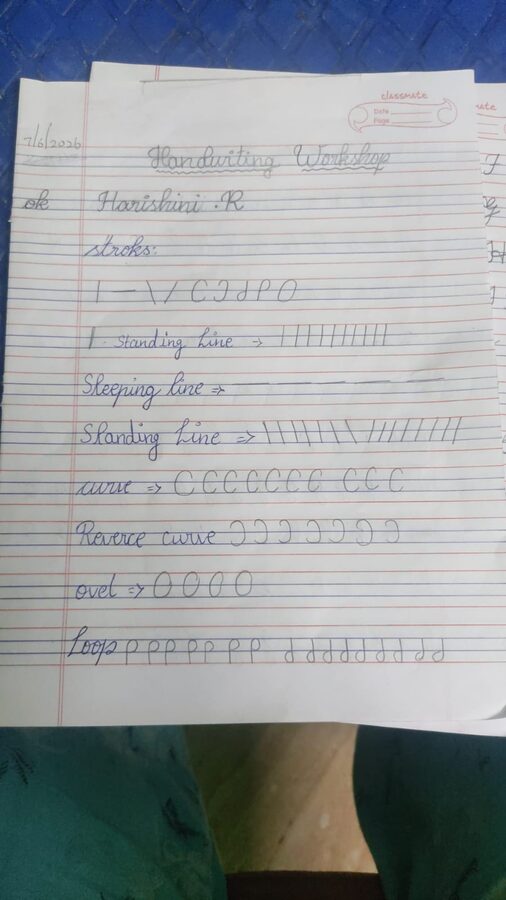 classmate
Date
Page
7/6/2026
Handwriting Workshop
ok Harishini .R
stroks:
| — \ / C Ɔ d P O
| Standing Line → | | | | | | | | | | |
Sleeping line => — — — — —
Slanding Line => \ \ \ \ \ \ \ \ / / / / / / / /
curve => C C C C C C C C C C
Reverce curve Ɔ Ɔ Ɔ Ɔ Ɔ Ɔ Ɔ Ɔ
ovel => O O O O
Loop P P P P P P P d d d d d d d d d